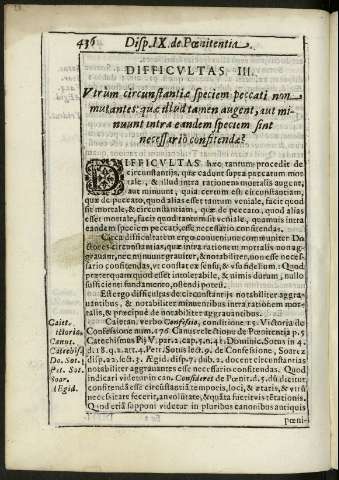 436 Disp. IX. de Pœnitentia.
DIFFICULTAS III.
Vtrùm circunstantiæ speciem peccati non
mutantes: quæ illud tamen augent, aut mi-
nuunt intra eandem speciem sint
necessariò confitendæ?
DIFFICVLTAS hæc tantum procedit de
circunstantijs, quæ cadunt supra peccatum mor
tale, & illud intra rationem mortalis augent,
aut minuunt, quia certum est circunstantiam,
quæ de peccato, quod alias esset tantum veniale, facit quod
sit mortale, & circunstantiam, quæ de peccato, quod alias
esset mortale, facit quod tantum sit veniale, quamuis intra
eandem speciem peccati, esse necessariò confitendas.
Circa difficultatem ergo conueniunt communiter Do
ctores circunstantias, quæ intra rationem mortalis nõ ag-
grauant, nec minuunt grauiter, & notabiliter, non esse neces-
sariò confitendas, vt constat ex sensu, & vsu fidelium: Quod
præterquam quod esset intolerabile, & nimis durum, nullo
sufficienti fundamento, ostendi potest.
Est ergo difficultas de circunstantijs notabiliter aggra-
uantibus, & notabiliter minuentibus intra rationem mor-
talis, & præcipuè de notabiliter aggrauantibus.
Caietan. verbo Confessio, conditione 13. Victoria de
Confessione num. 176. Canus relectione de Pœnitentia p. 5
Catechismus Pij V. par. 2. cap. 5. n. 41. Dominic. Sotus in 4.
dist. 18. q. 2. art. 4. Petr. Sotus lect. 9. de Confessione, Soarez
disp. 22. sect. 3. Ægid. disp. 7. dub. 2. docent circunstantias
notabiliter aggrauantes esse necessariò confitendas. Quod
indicari videtur in cap. Consideret de Pœnit. d. 5. dũ dicitur
confitendã esse circunstantiã temporis, loci, & ætatis, & vtrũ
necessitate fecerit, an volũtate, & quãta fuerit vis tẽtationis.
Quod etiã supponi videtur in pluribus canonibus antiquis
Caiet.
Canus.
Catechis.
Do. Sot.
Pet. Sot.
Soar.
Ægid.
pœni-